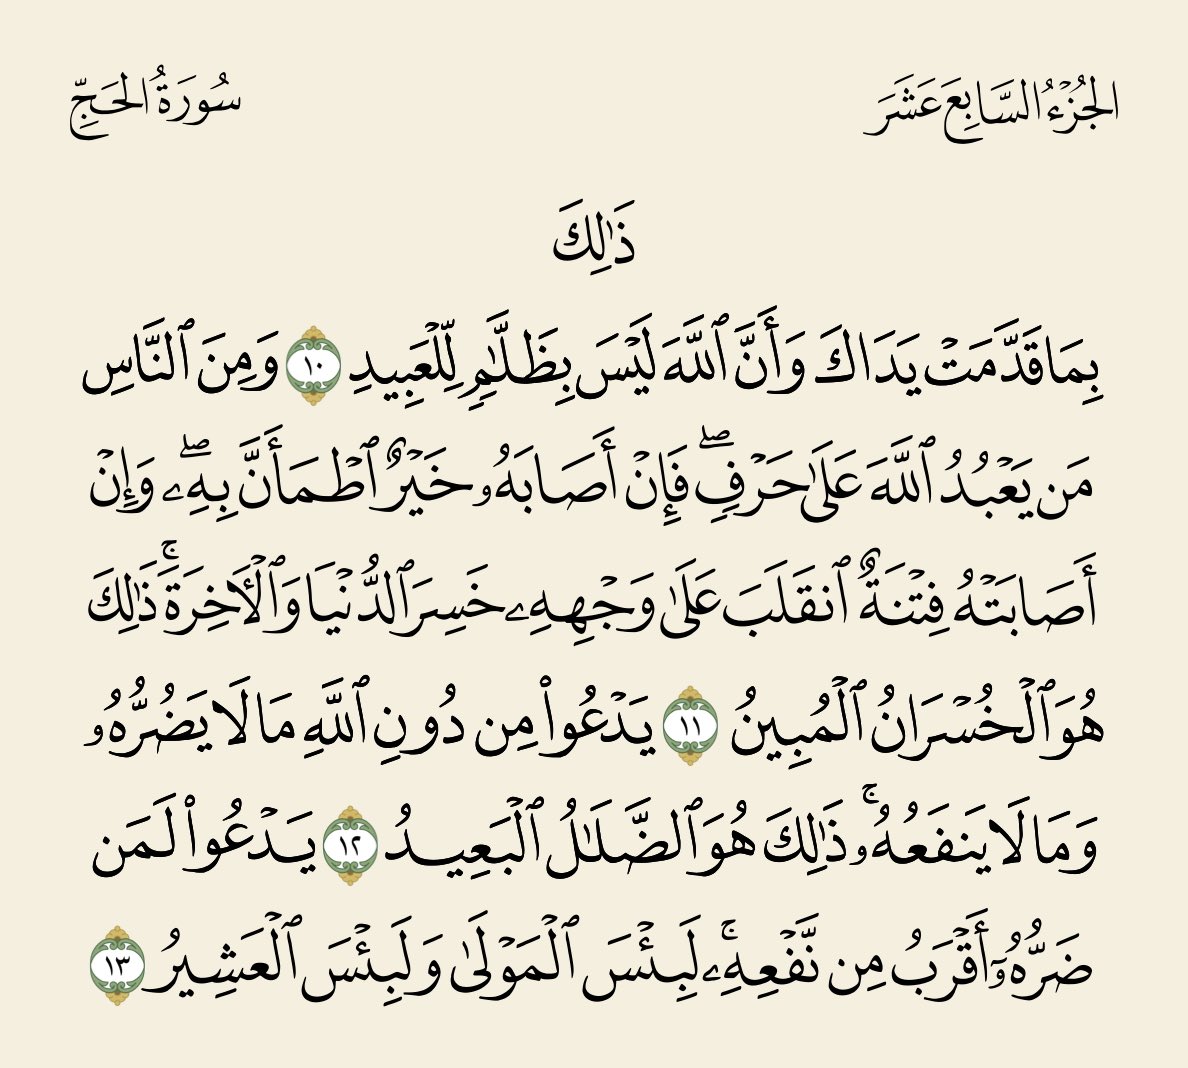 الجُزْءُ السَّابِعَ عَشَرَ
سُورَةُ الحَجِّ
ذَٰلِكَ
بِمَا قَدَّمَتْ يَدَاكَ وَأَنَّ ٱللَّهَ لَيْسَ بِظَلَّٰمٍ لِّلْعَبِيدِ ١٠ وَمِنَ ٱلنَّاسِ
مَن يَعْبُدُ ٱللَّهَ عَلَىٰ حَرْفٍ ۖ فَإِنْ أَصَابَهُۥ خَيْرٌ ٱطْمَأَنَّ بِهِۦ ۖ وَإِنْ
أَصَابَتْهُ فِتْنَةٌ ٱنقَلَبَ عَلَىٰ وَجْهِهِۦ خَسِرَ ٱلدُّنْيَا وَٱلْـَٔاخِرَةَ ۚ ذَٰلِكَ
هُوَ ٱلْخُسْرَانُ ٱلْمُبِينُ ١١ يَدْعُوا۟ مِن دُونِ ٱللَّهِ مَا لَا يَضُرُّهُۥ
وَمَا لَا يَنفَعُهُۥ ۚ ذَٰلِكَ هُوَ ٱلضَّلَٰلُ ٱلْبَعِيدُ ١٢ يَدْعُوا۟ لَمَن
ضَرُّهُۥٓ أَقْرَبُ مِن نَّفْعِهِۦ ۚ لَبِئْسَ ٱلْمَوْلَىٰ وَلَبِئْسَ ٱلْعَشِيرُ ١٣